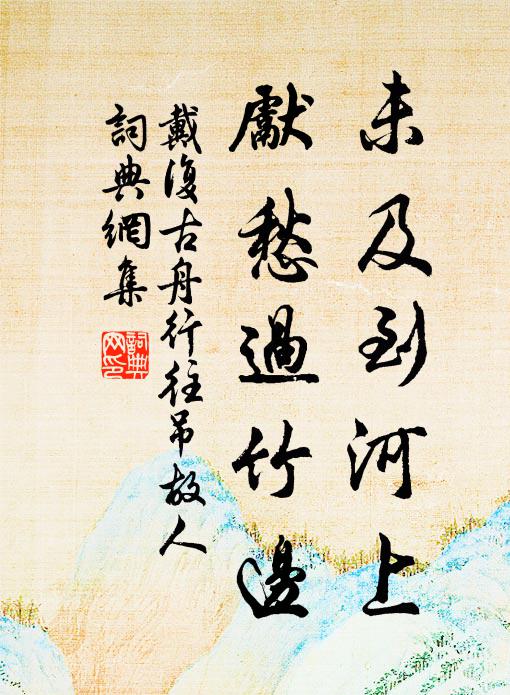 未及到河上
獻愁過竹邊
戴復古舟行往吊故人
詞典網集
詞典
网印